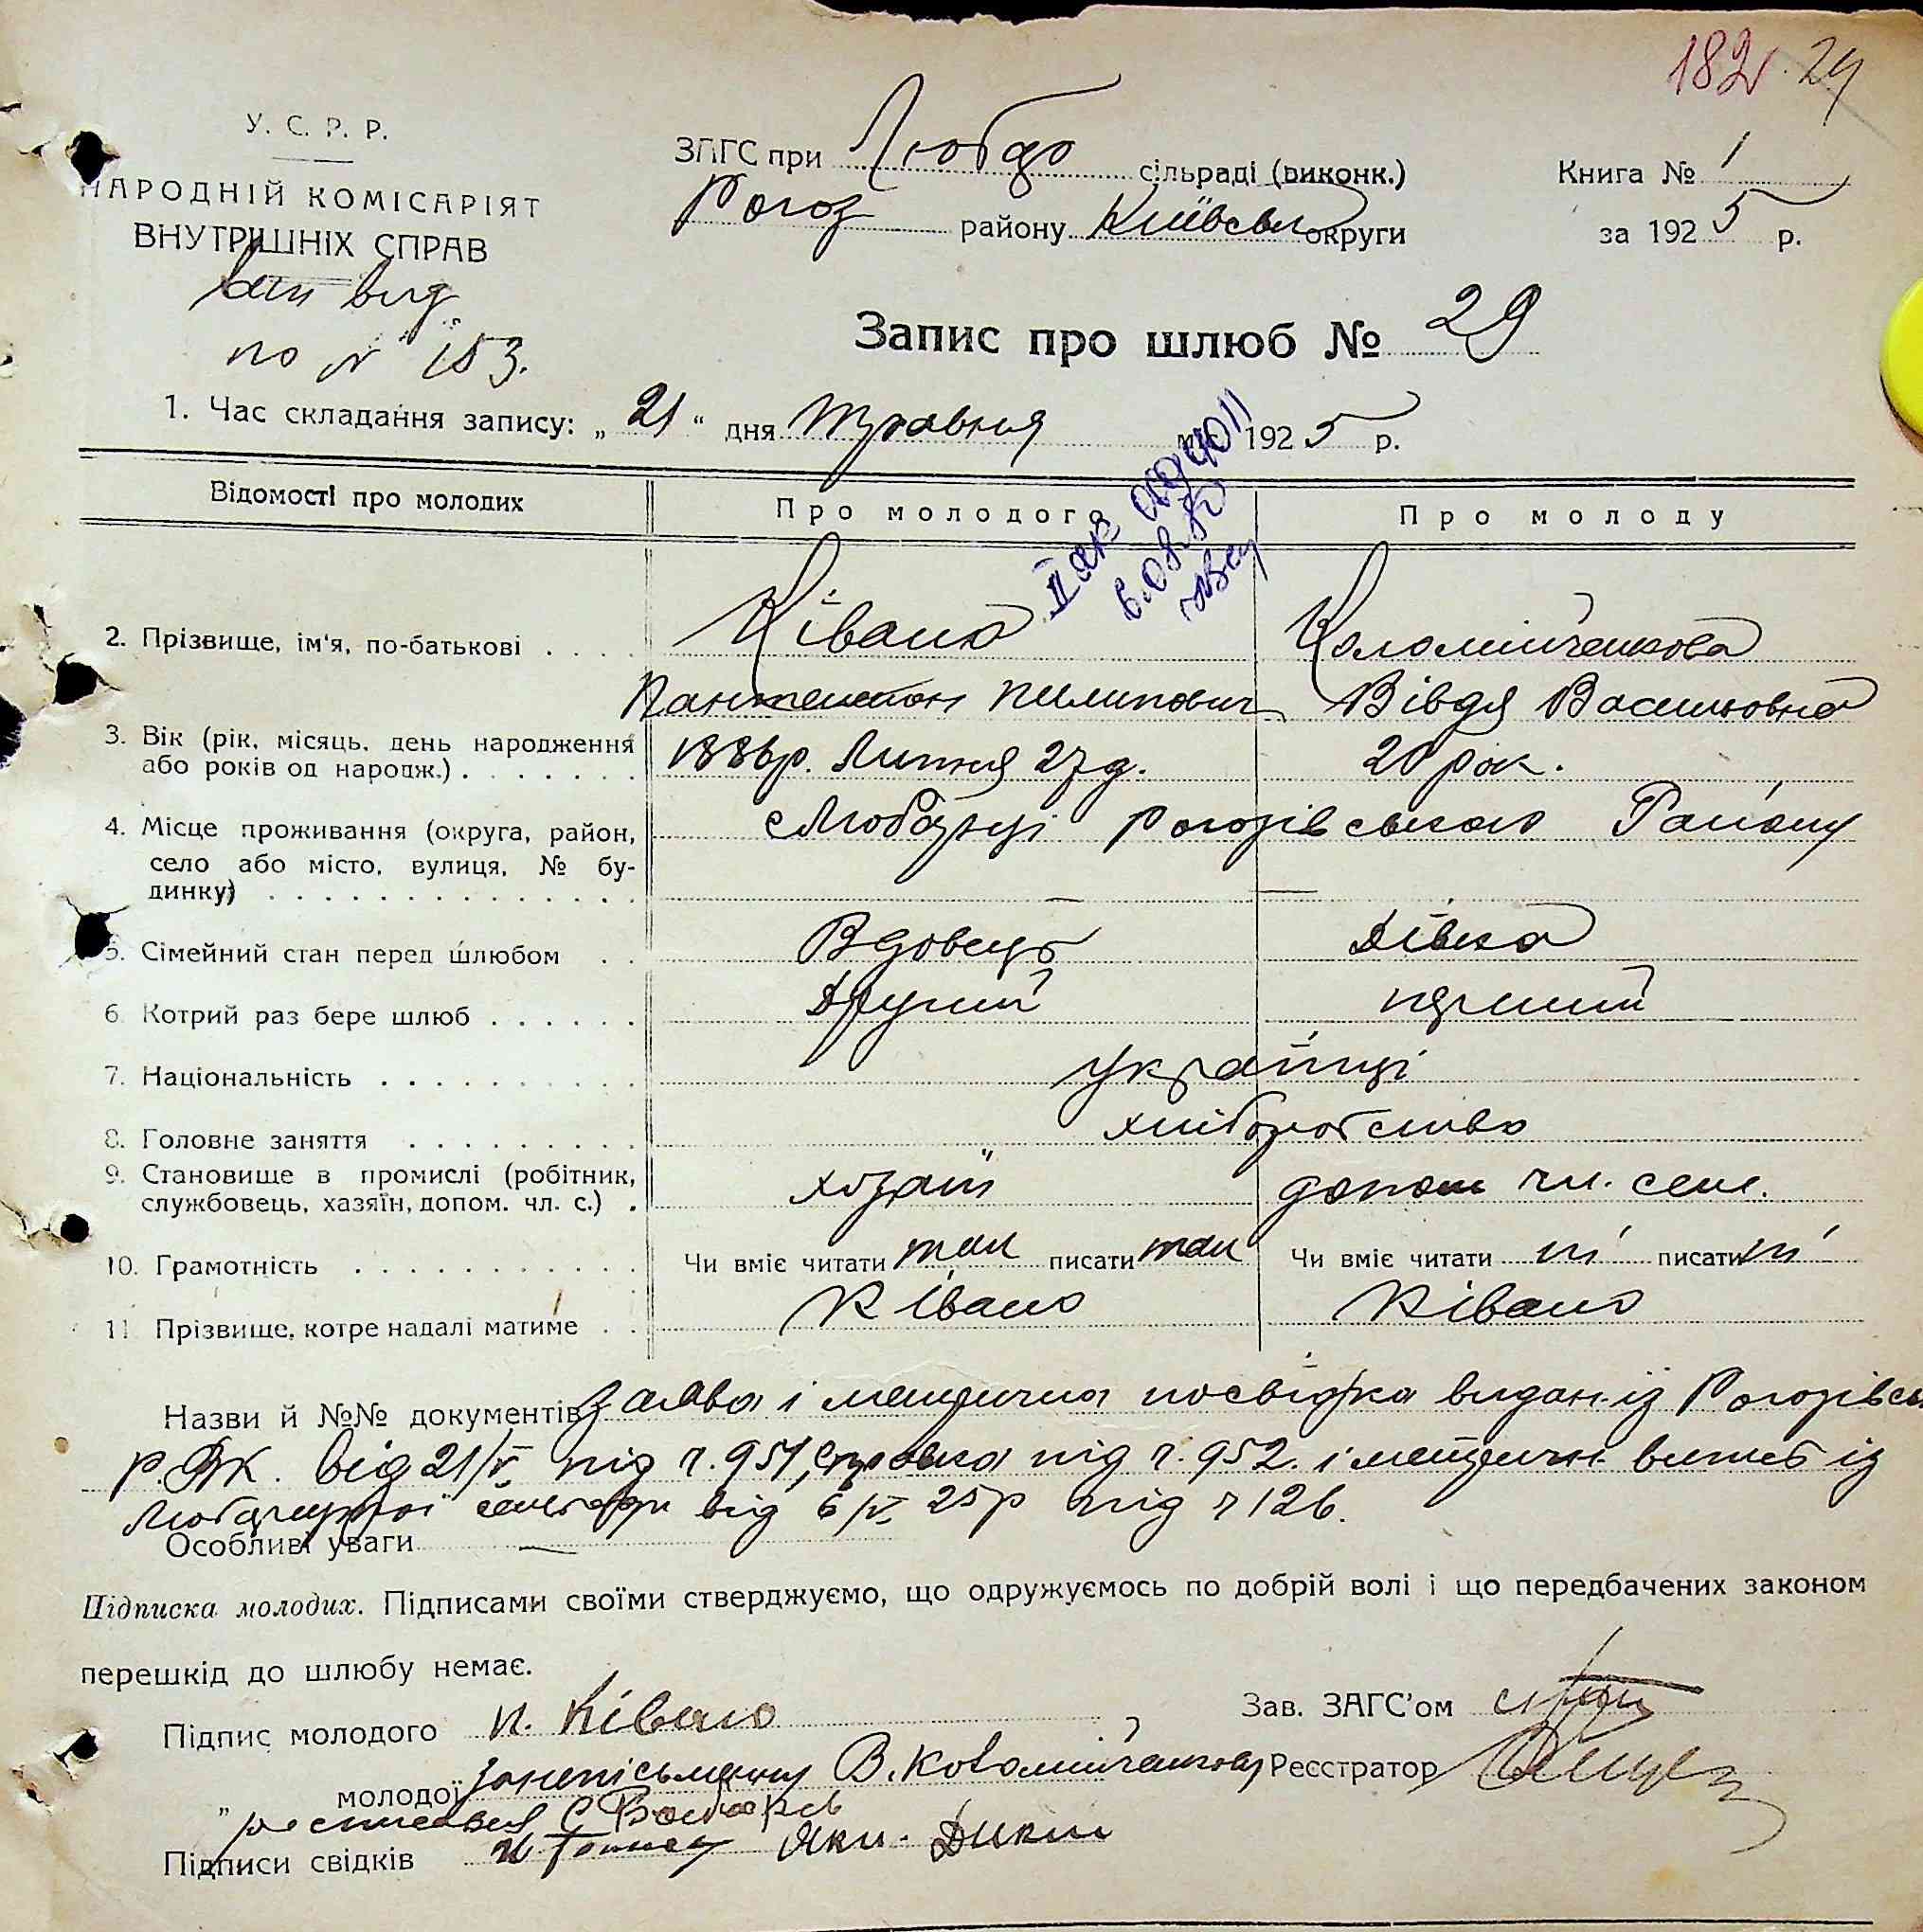 182 24
У. С. Р. Р.
НАРОДНІЙ КОМІСАРІЯТ
ВНУТРІШНІХ СПРАВ
вид
по № 153.
ЗАГС при Любар сільраді (виконк.)
Рогоз району Київськ округи
Книга № 1
за 1925 р.
Запис про шлюб № 29
1. Час складання запису: „21“ дня травня міс. 1925 р.
6.08.82
Відомості про молодих Про молодого Про молоду
2. Прізвище, ім'я, по-батькові . . . . Ківало Коломійченкова
Пантелемон Пилипович Вівдя Васильовна
3. Вік (рік, місяць, день народження або років од народж.) . . . . . . . 1886р. Липня 27 д. 20 рок.
4. Місце проживання (округа, район, село або місто, вулиця, № будинку) . . . . . . . . . . . . . . с Любарці Рогозівського Району
5. Сімейний стан перед шлюбом . . Вдовець Дівка
6. Котрий раз бере шлюб . . . . . . Другий перший
7. Національність . . . . . . . . . . українці
8. Головне заняття . . . . . . . . . хліборобство
9. Становище в промислі (робітник, службовець, хазяїн, допом. чл. с.) . хозяїн допом чл. сем.
10. Грамотність . . . . . . . . . . . Чи вміє читати так писати так Чи вміє читати ні писати ні
11. Прізвище, котре надалі матиме . . Ківало Ківало
Назви й №№ документів Заява і метрична посвідка видан. із Рогозівськ
Р.ВК. від 21/V під ч. 951, справка під ч. 952. і метричн. витяг із
Любарецької сільради від 6/V 25р під ч 126.
Особливі уваги —
Підписка молодих. Підписами своїми стверджуємо, що одружуємось по добрій волі і що передбачених законом
перешкід до шлюбу немає.
Підпис молодого П. Ківало
Зав. ЗАГС'ом
„ молодої за неписьменну В. Коломійченкову
Реєстратор
росписався С
Підписи свідків Яки. Дикий